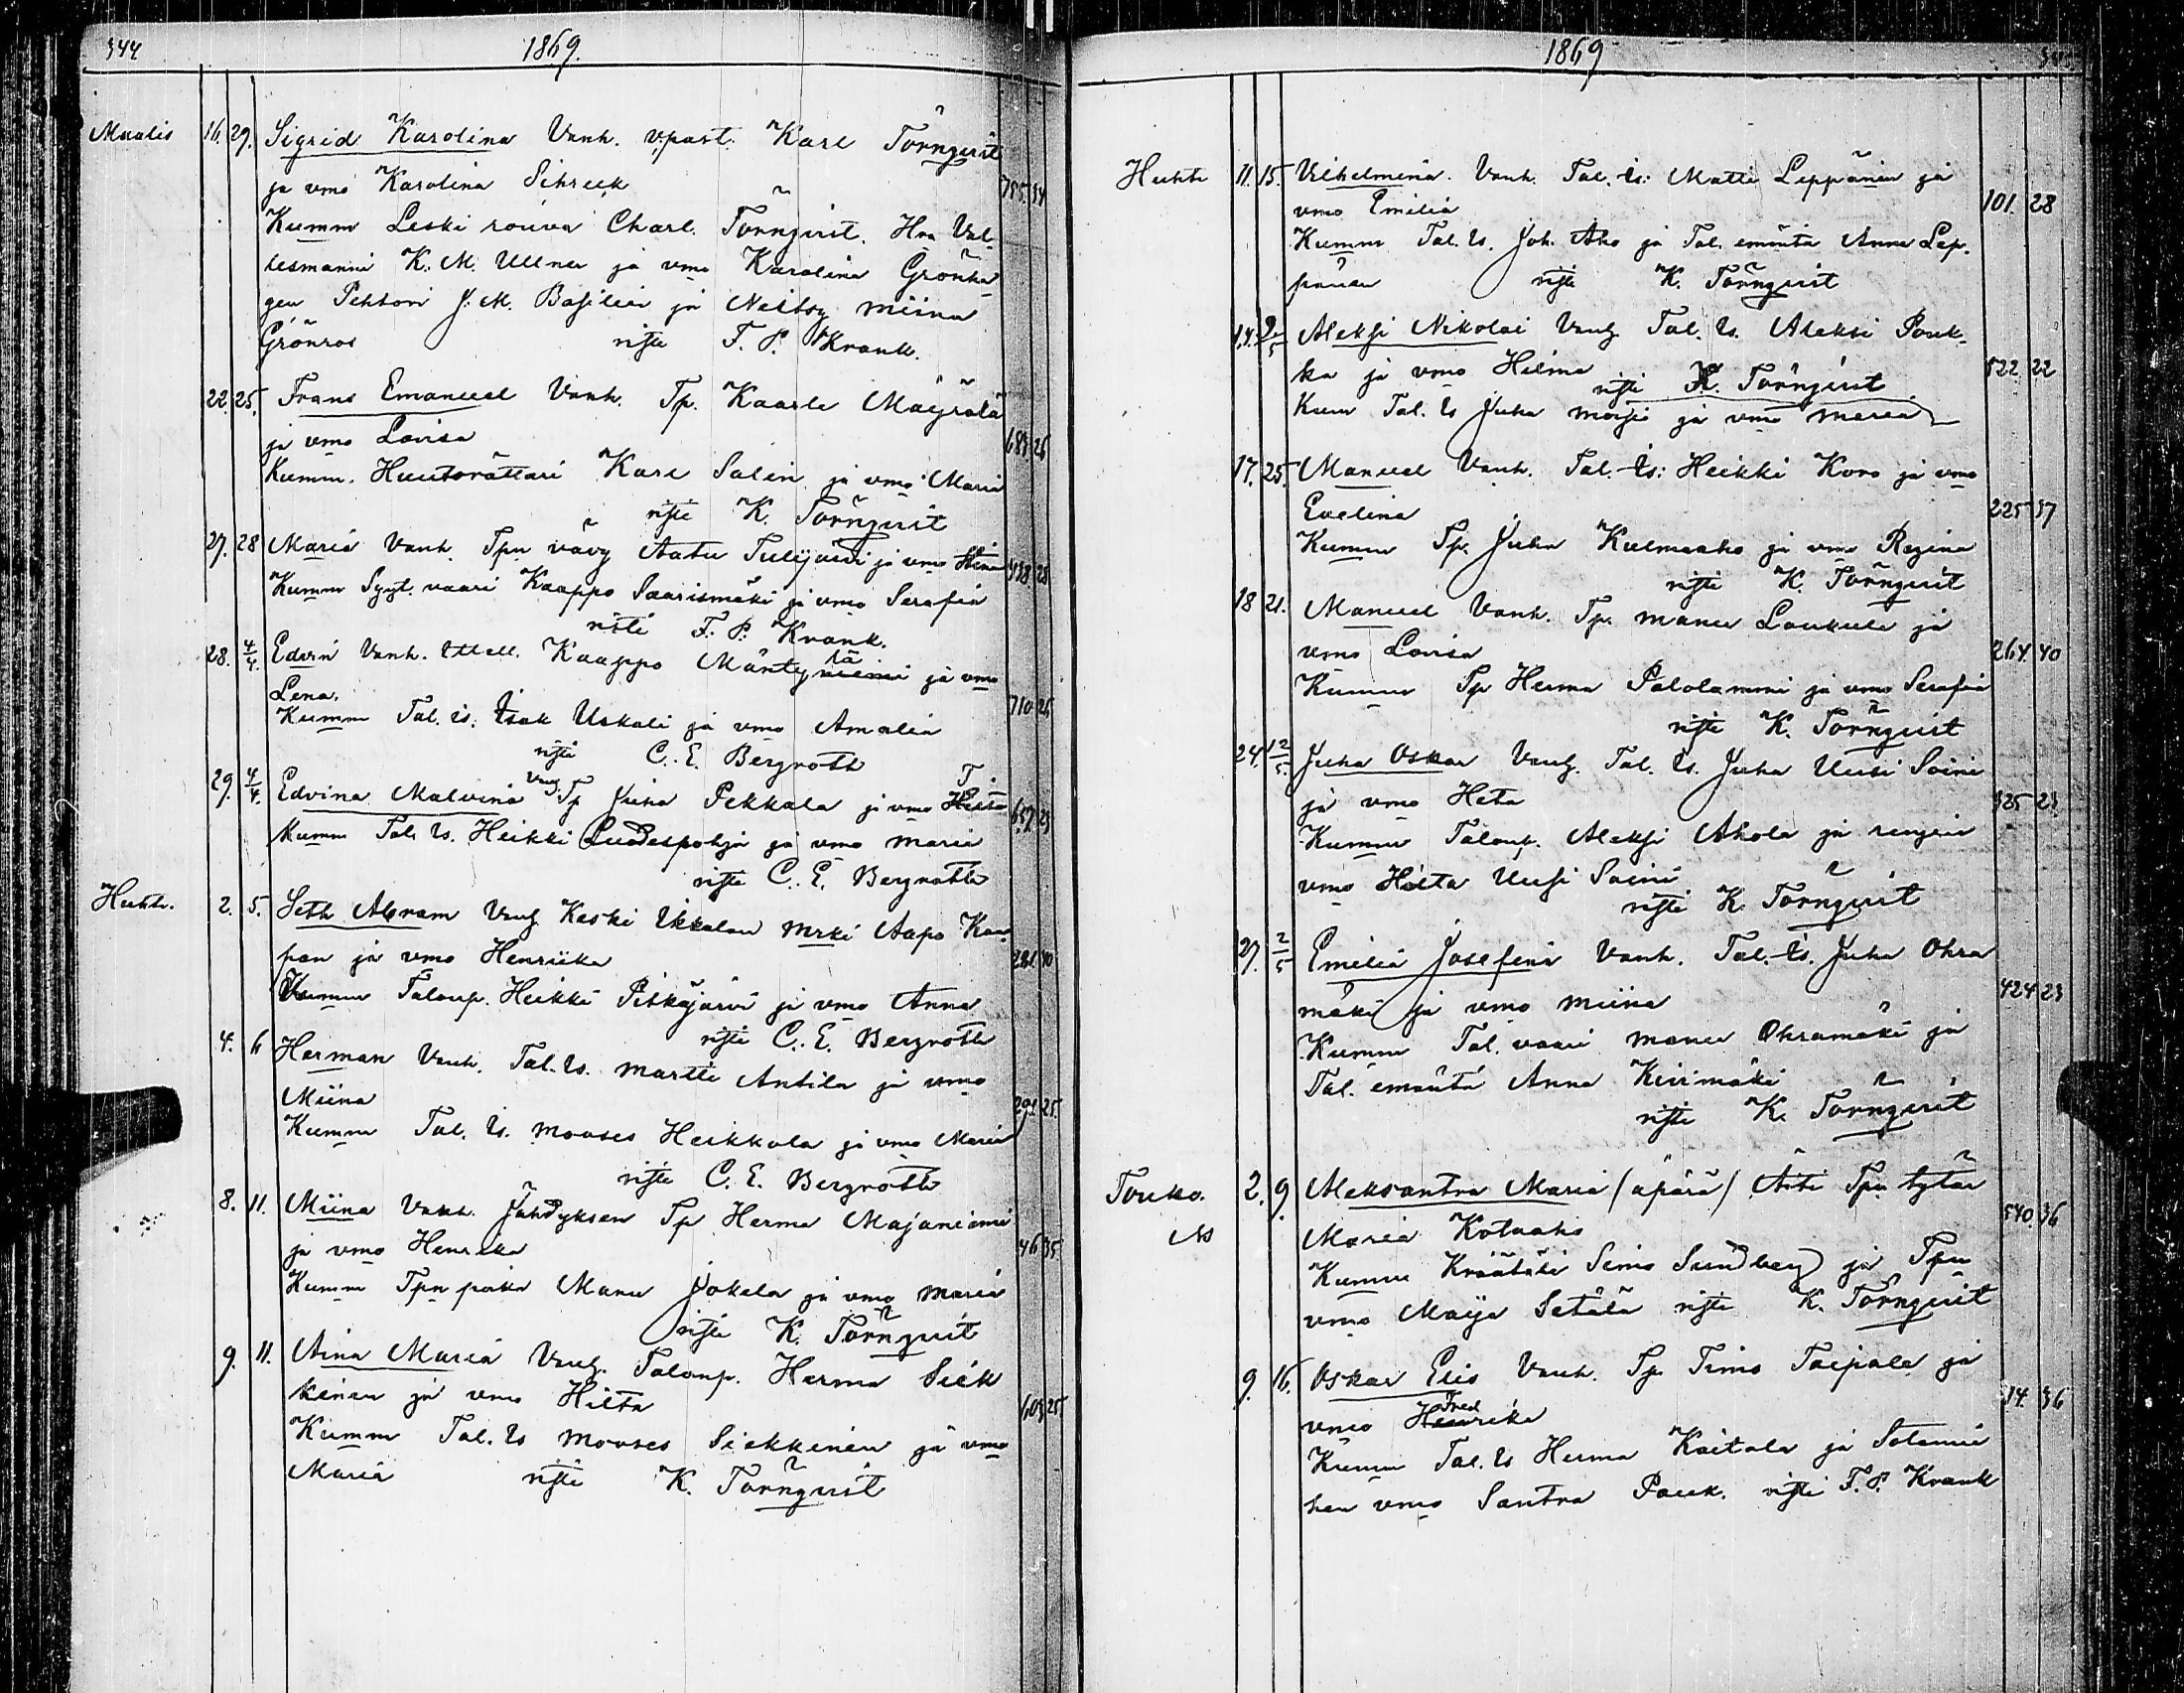 344 1869.
Maalis 16. 29. Sigrid Karolina Vanh. v.past. Karl Törnqvist
ja vmo Karolina Schreck 785. 34
Kumm Leski rouva Charl. Törnqvist. Hra Val-
lesmanni K. M. Ullner ja vmo Karolina Grönha-
gen Tehtori J. M. Basilier ja Neitsy Miina
Grönros risti F. P. Krank.
22. 25. Frans Emanuel Vanh. Tp. Kaarle Mäyrälä
ja vmo Lovisa 689 26
Kumm. Huutorättäri Karl Salin ja vmo Maria
risti K. Törnqvist
27. 28 Maria Vanh. Tpn vävy Aatu Tulijärvi ja vmo 438 28
Kumm Syyt. vaari Kaappo Saarismäki ja vmo Serafia
risti F. P. Krank.
28. 4/4. Edvin Vanh. Itsell. Kaappo Mäntyniemi lä ja vmo
Lena. 710 26
Kumm Tal. is. Isak Uskali ja vmo Amalia
risti C. E. Bergroth
29. 4/4. Edvina Malvina Vanh. Tp Juha Pekkala ja vmo 657 23
Kumm Tal. is. Heikki Luodespohja ja vmo Maria
risti C. E. Bergroth
Huhti. 2. 5. Seth Abram Vanh Keski Ikkalan mrki Aapo Kau-
pan ja vmo Henriika 281 40
Kumm Taloup. Heikki Pitkäjärvi ja vmo Anna
risti C. E. Bergroth
4. 6 Herman Vanh. Tal. is. Martti Antila ja vmo
Miina 291 25.
Kumm Tal. is. Mooses Heikkola ja vmo Maria
risti C. E. Bergroth
8. 11. Miina Vanh. Jähdyksen Tp Herma Majaniemi
ja vmo Henrika 46 35
Kumm Tpn poika Manu Jokela ja vmo Maria
risti K. Törnqvist
9. 11. Aina Maria Vanh. Taloup. Herma Siek
kinen ja vmo Hilta 603 25
Kumm Tal. is Mooses Siekkinen ja vmo
Maria risti K. Törnqvist
1869 345
Huhti 11. 15. Vilhelmina. Vanh. Tal. is: Matti Leppänen ja
vmo Emilia 101. 28
Kumm Tal. is. Joh. Aho ja Tal. emäntä Anna Lep-
pänen risti K. Törnqvist
14. 2/5 Aleksi Nikolai Vanh Tal. is. Aleksi Pouk-
ka ja vmo Helma risti K. Törnqvist 522 22
Kum Tal. is Juha Moisio ja vmo Maria
17. 25. Manuel Vanh. Tal. is: Heikki Koro ja vmo
Evelina 225 37
Kumm Tp. Juha Kulmaaho ja vmo Regina
risti K. Törnqvist
18 21. Manuel Vanh. Tp. Manu Loukula ja
vmo Lovisa 264 40
Kumm Tp Herma Palolammi ja vmo Serafia
risti K. Törnqvist
24. 12/5. Juha Oskar Vanh. Tal. is. Juha Uusi Soini
ja vmo Heta 325 23
Kumm Taloup. Aleksi Ahola ja rengin
vmo Heta Uusi Soini
risti K. Törnqvist
27. 2/5 Emilia Josefina Vanh. Tal. is. Juha Ohra
mäki ja vmo Miina 424 23
Kumm Tal. vaari Manu Ohramäki ja
Tal. emäntä Anna Kivimäki
risti K. Törnqvist
Touko. 2. 9. Aleksantra Maria (äpärä) Äiti Tpn tytär
Maria Kotaaho 540 36
Kumm Kräätäli Simo Sundberg ja Tpn
vmo Maija Setälä risti K. Törnqvist
9. 16. Oskar Elis Vanh. Tp. Timo Taipale ja
vmo Henrika Fred 14. 36
Kumm Tal. is Herma Koitola ja Sotamie
hen vmo Santra Pauk. risti F. P. Krank